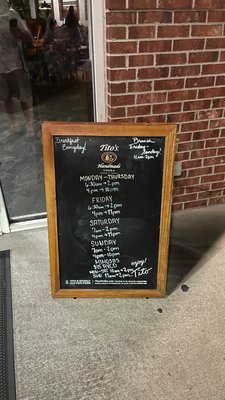 Breakfast
Everyday!
Brunch
Friday -
Sunday!
11am-2pm
Tito's
Handmade
VODKA
MONDAY - THURSDAY
6:30am → 2pm
4pm → 10pm
FRIDAY
6:30am → 2pm
4pm → 11pm
SATURDAY
7am - 2pm
4pm → 11pm
SUNDAY
7am - 2pm
4pm - 10pm
MIMOSAS
MON-SAT 10am → 2pm
SUN 11am → 2pm
enjoy!
Tito